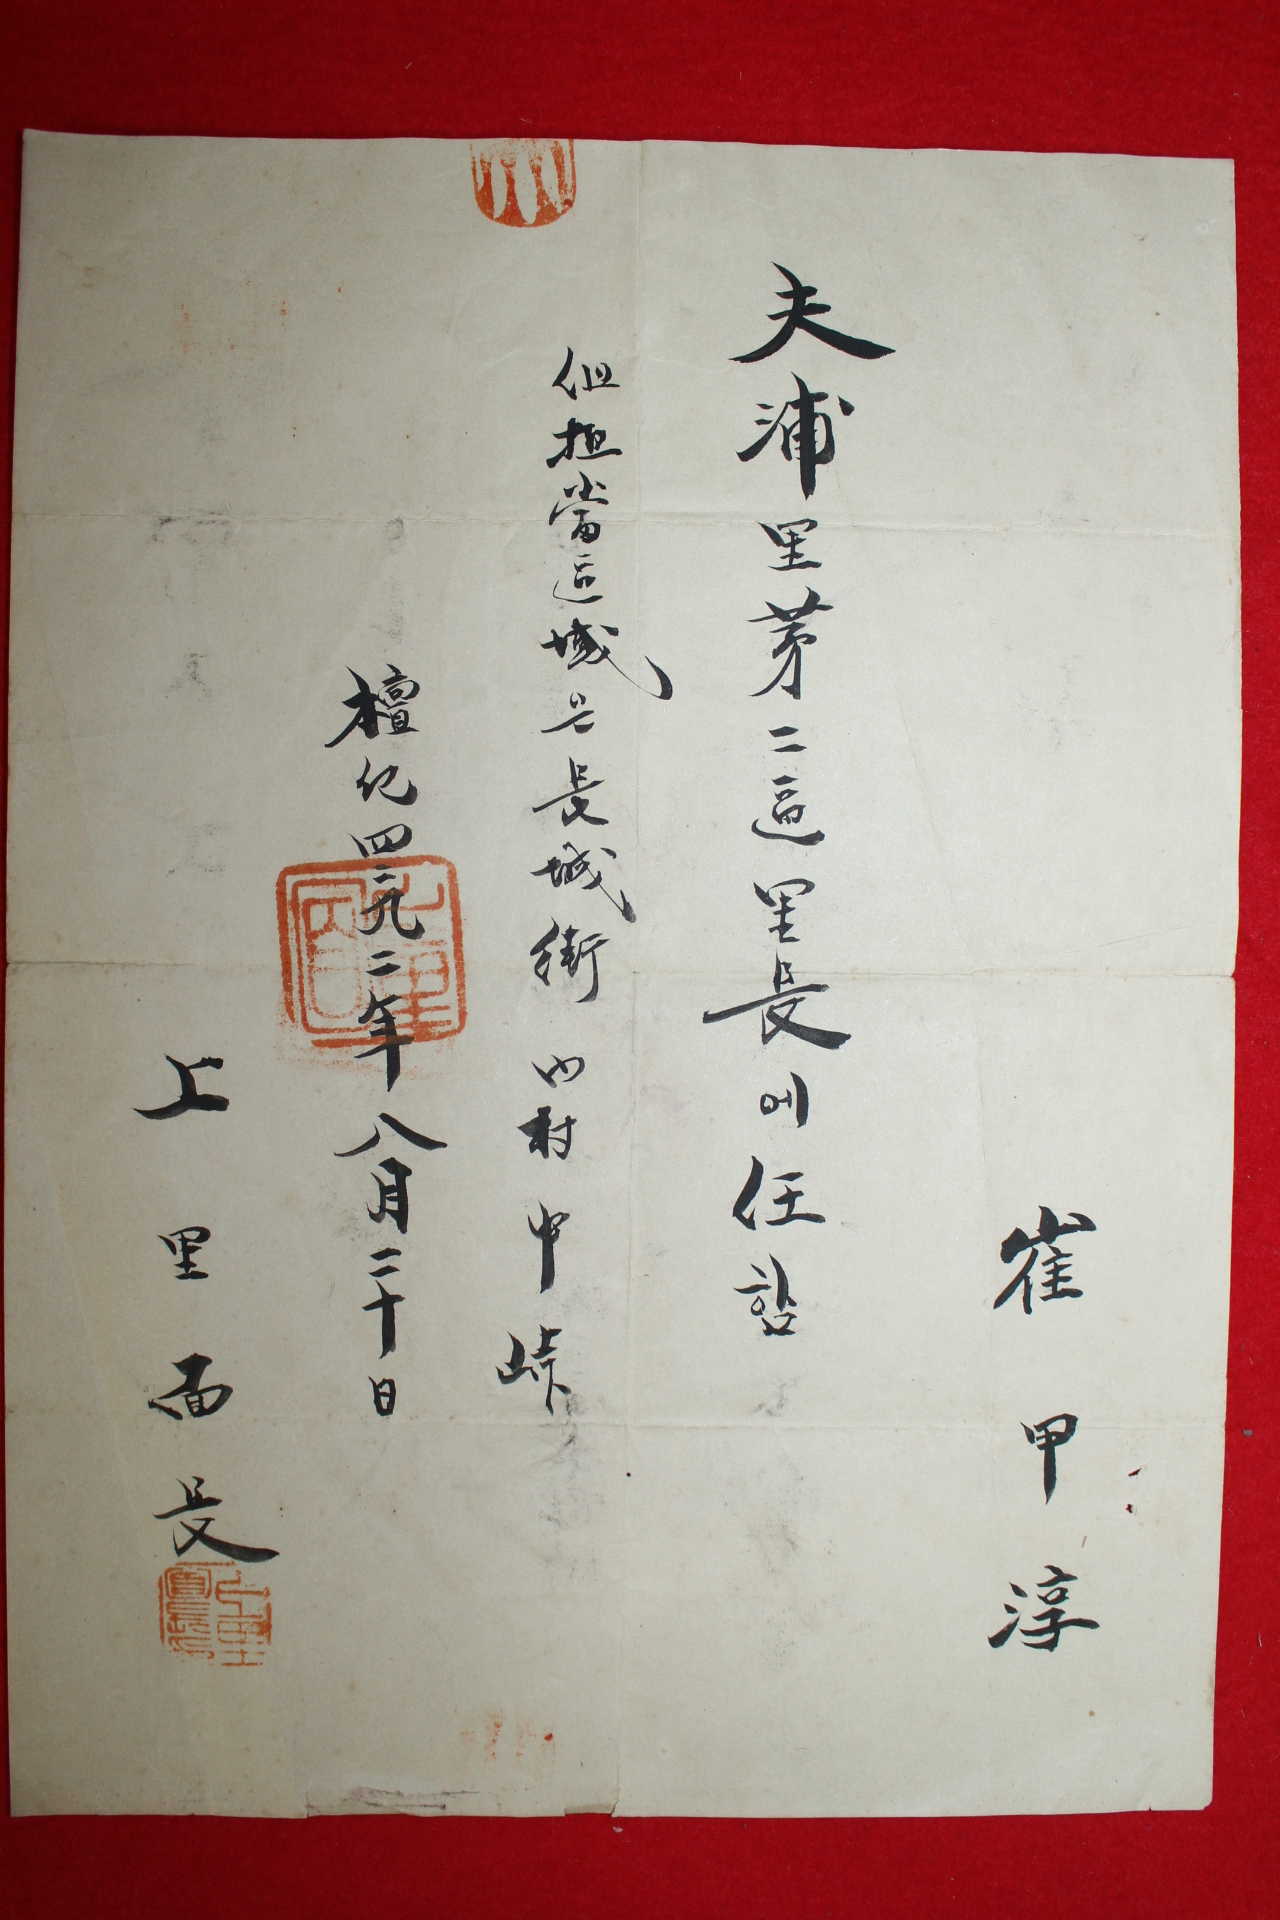 崔甲淳
夫浦里第二區里長에任함
但担當區域은長城街 內村 中峠
檀紀四二九二年八月二十日
上里面長